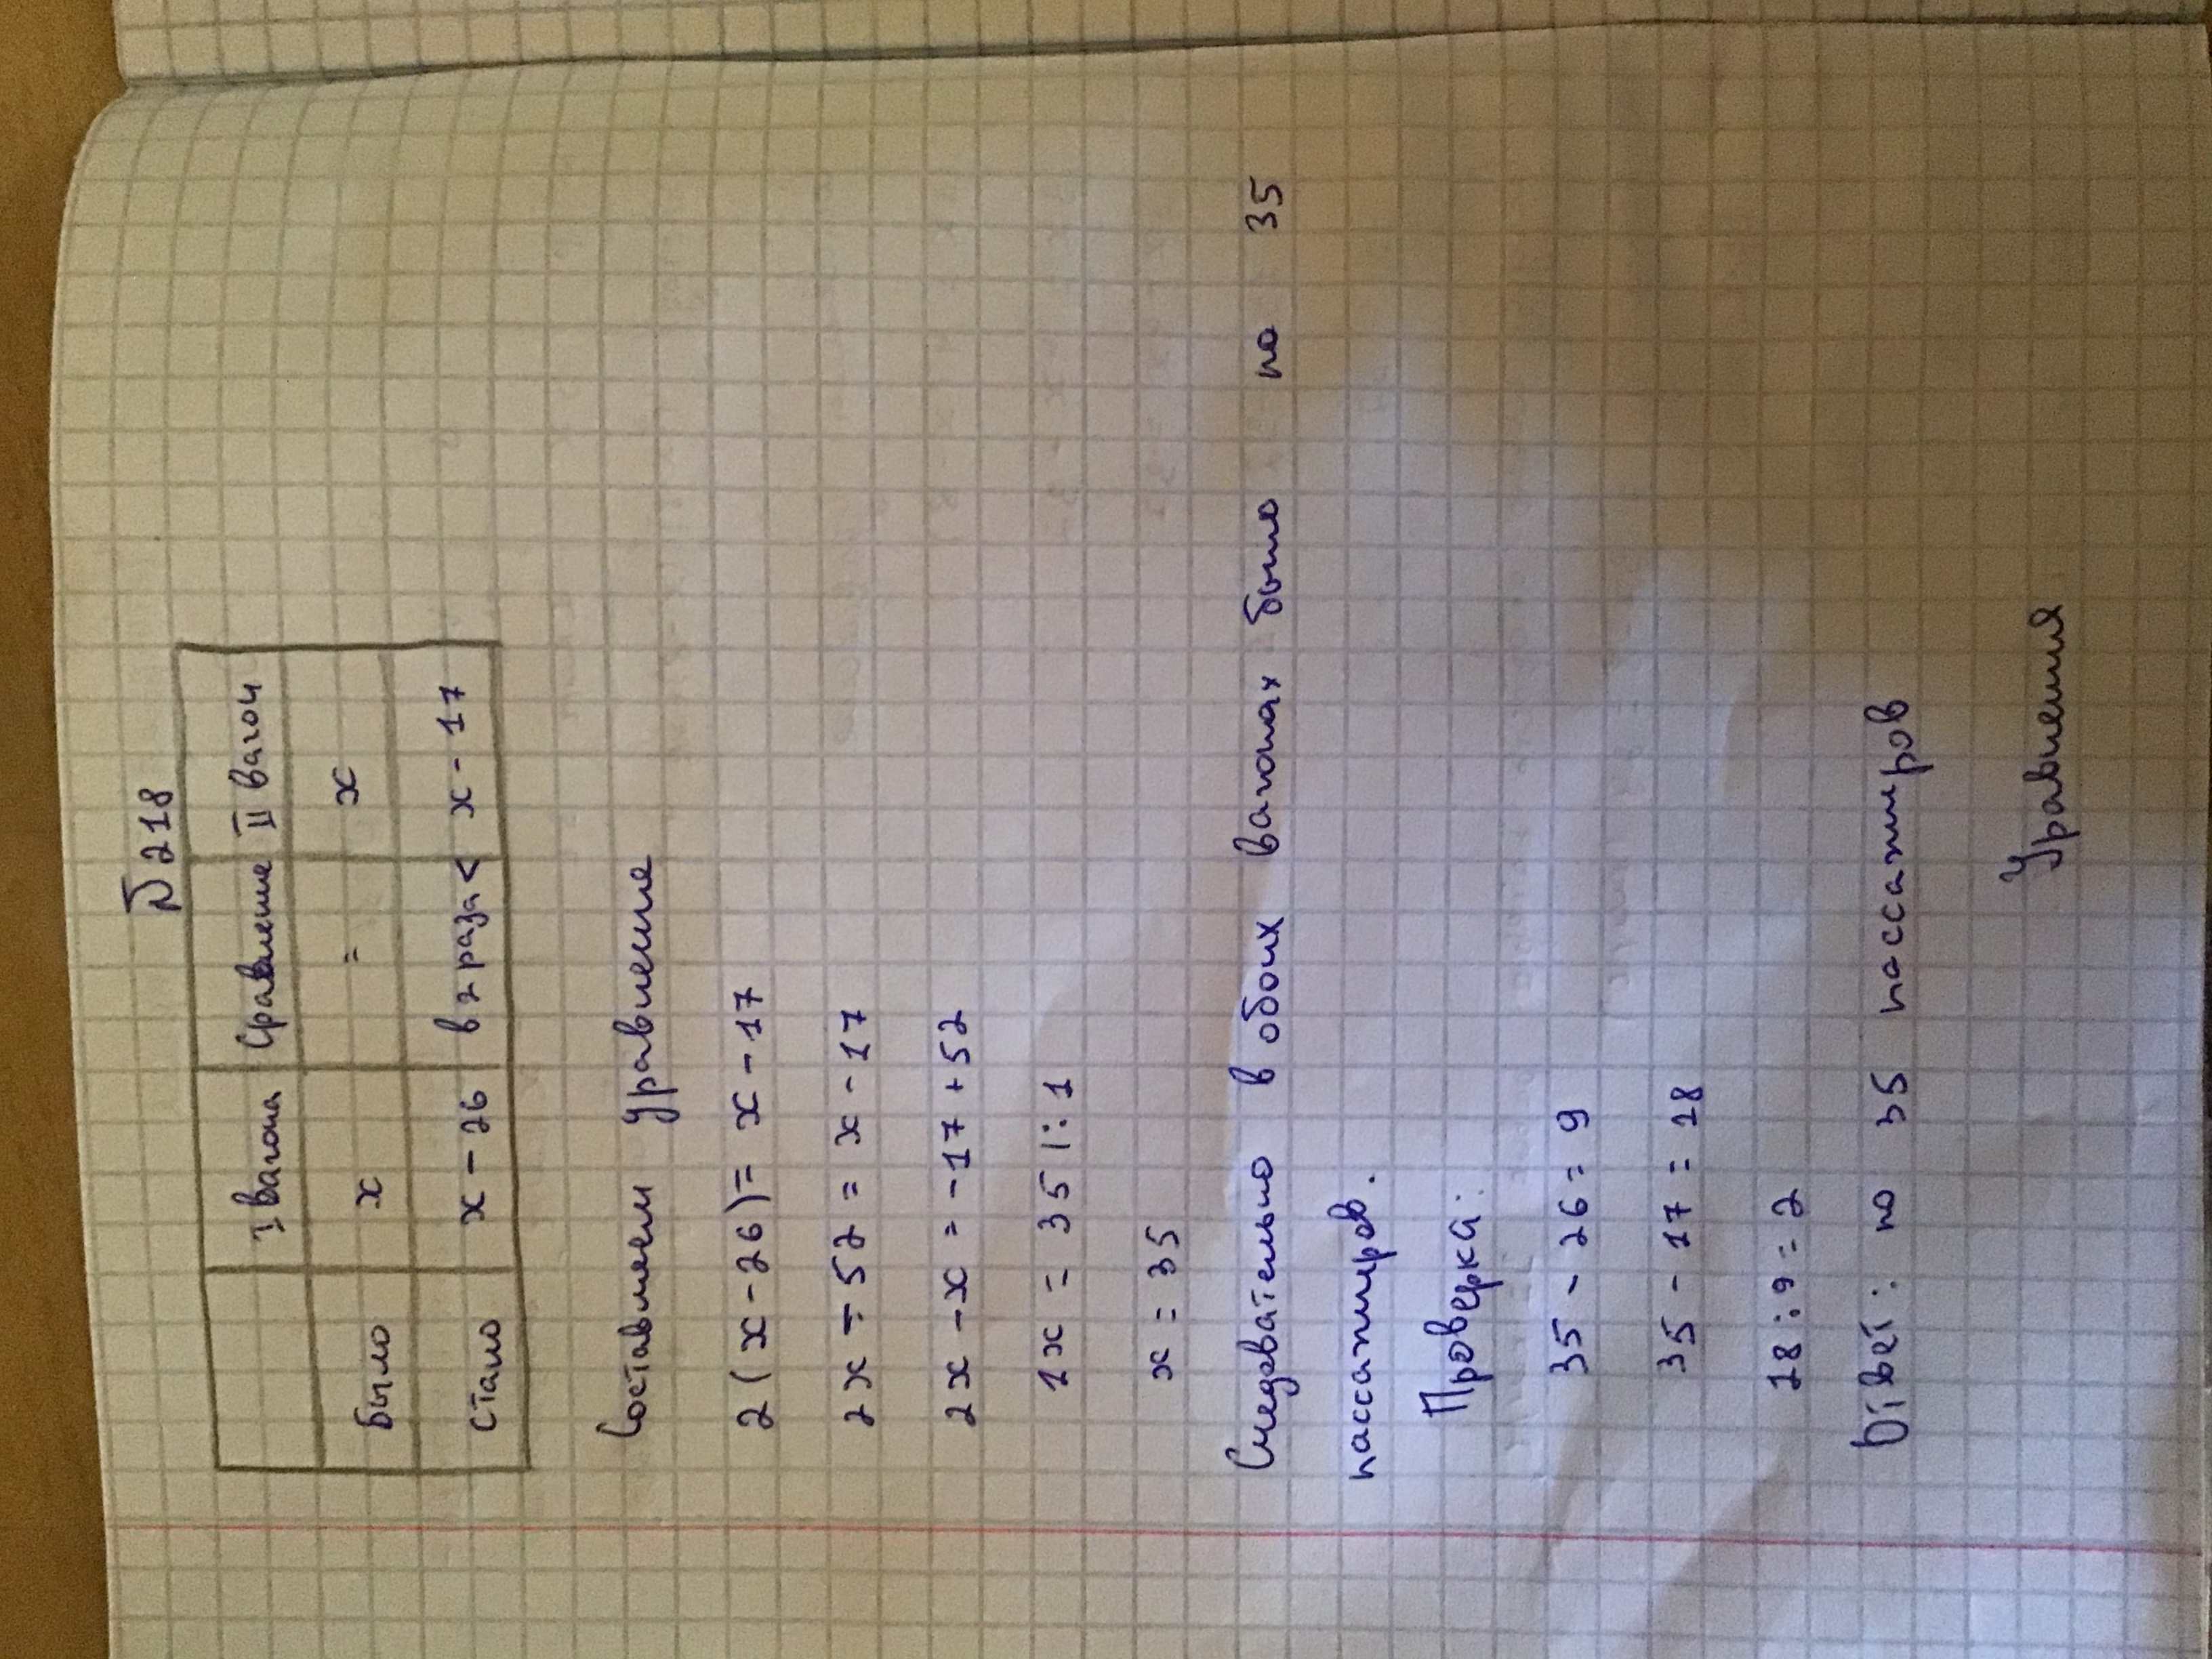 №218
I вагона Сравнение II вагон
Было x = x
Стало x - 26 в 2 раза < x - 17
Составляем уравнение
2(x-26)= x-17
2x-52 = x-17
2x-x = -17+52
1x = 35 |:1
x = 35
Следовательно в обоих вагонах было по 35
пассажиров.
Проверка:
35 - 26 = 9
35 - 17 = 18
18:9=2
Ответ: по 35 пассажиров
Уравнения